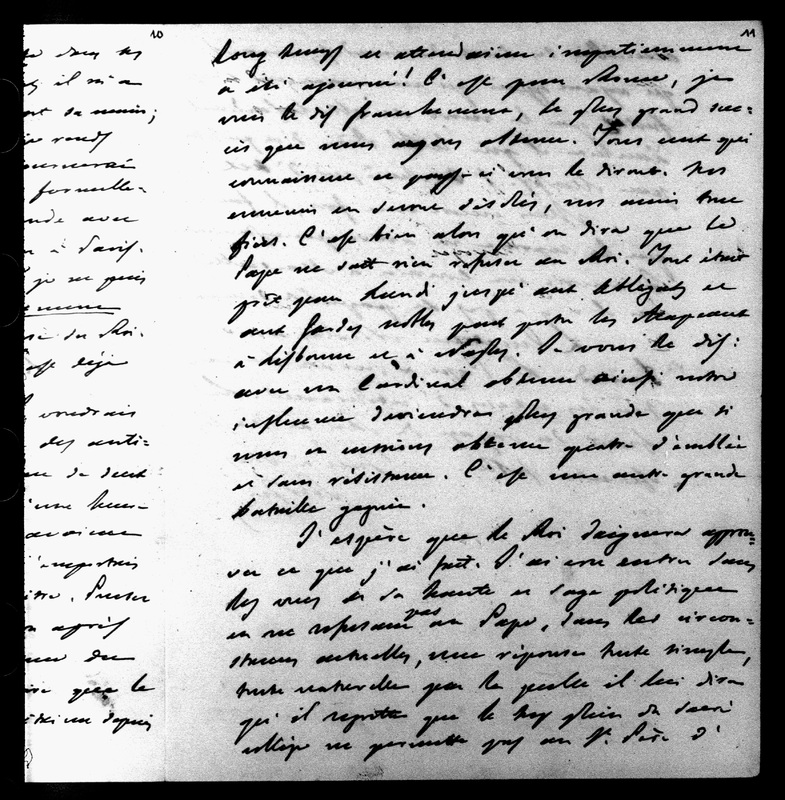 10
de dans les
il m'a
sa main;
je rends
formelle-
avec
à Paris.
je ne puis
du Roi.
déjà
voudrais
des anti-
de deux
une heure
avaient
j'emportais
après
du
que le
depuis
11
longtemps et attendaient impatiemment
a été ajourné! C'est pour Rome, je
vous le dis franchement, le plus grand suc=
cès que nous ayons obtenu. Tous ceux qui
connaissent ce pays-ci vous le diront. Nos
ennemis en seront désolés, nos amis tout
fiers. C'est bien alors qu'on dira que le
Pape ne sait rien refuser au Roi. Tout était
prêt pour Lundi jusqu'aux Ablégats et
aux Gardes nobles pour porter les chapeaux
à Lisbonne et à Naples. Je vous le dis:
avec un Cardinal obtenu ainsi notre
influence deviendra plus grande que si
nous en eussions obtenu quatre d'emblée
et sans résistance. C'est une autre grande
bataille gagnée.
J'espère que le Roi daignera approu=
ver ce que j'ai fait. J'ai cru entrer dans
les vues de sa haute et sage politique
en ne refusant pas au Pape, dans les circon=
stances actuelles, une réponse toute simple,
toute naturelle par laquelle il lui dira
qu'il regrette que le trop plein du Sacré
collège ne permette pas au St. Père d'